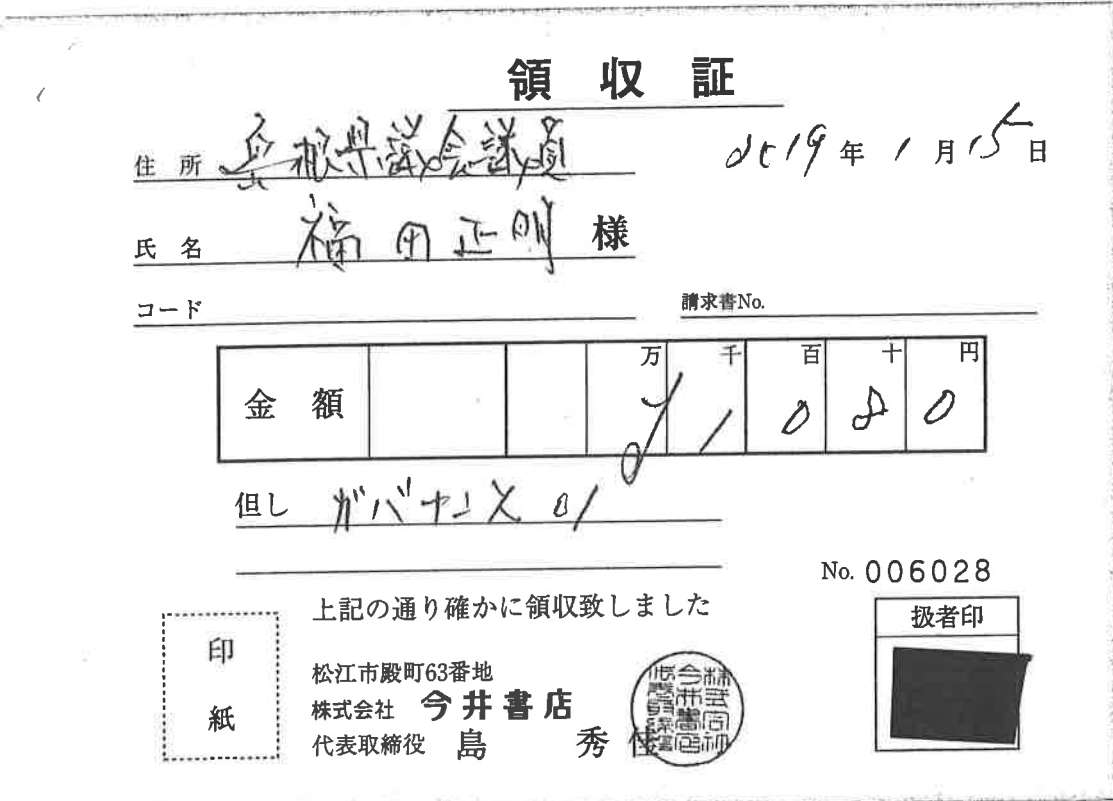 領 収 証
住 所 島根県議会議員
2019 年 1 月 15 日
氏 名 福田正明 様
コード
請求書No.
金 額 万 千 百 十 円
¥ 1 0 8 0
但し ガバナンス 01
No. 006028
上記の通り確かに領収致しました
扱者印
印
紙
松江市殿町63番地
株式会社 今井書店
代表取締役 島 秀佳